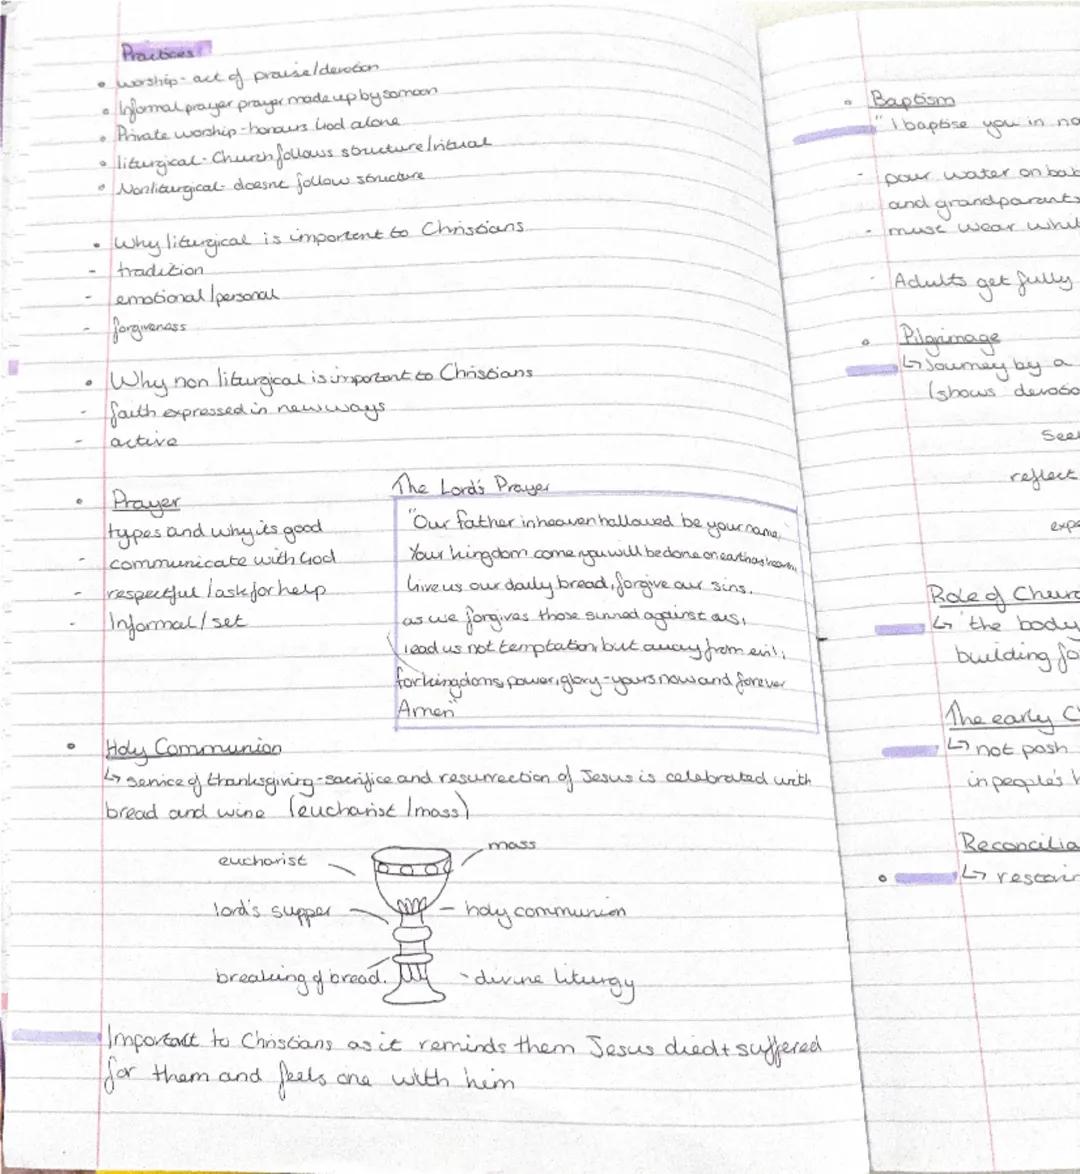 Practices
• worship - act of praise/devotion
• Informal prayer prayer made up by someon
• Private worship - honours God alone
• liturgical - Church follows structure/ritual
• Nonliturgical - doesnt follow structure
• Why liturgical is important to Christians
- tradition
- emotional/personal
- forgiveness
• Why non liturgical is important to Christians
- faith expressed in new ways
- active
• Prayer
types and why its good
- communicate with God
- respectful/ask for help
- Informal/set
The Lord's Prayer
"Our father in heaven hallowed be your name,
Your kingdom come you will be done on earth as heaven
Give us our daily bread, forgive our sins,
as we forgives those sinned against us,
lead us not temptation but away from evil,
for kingdoms, power, glory - yours now and forever
Amen"
• Holy Communion
↳ service of thanksgiving - sacrifice and resurrection of Jesus is celebrated with
bread and wine (eucharist/mass)
eucharist
mass
lord's supper
- holy communion
breaking of bread.
- divine liturgy
Important to Christians as it reminds them Jesus died + suffered
for them and feels one with him
• Baptism
"I baptise you in
- pour water on
and grandparents
- must wear
- Adults get fully
• Pilgrimage
↳ Journey by a
(shows
reflect
Role of
↳ 'the body
building
The early
↳ not posh
in people's
↳